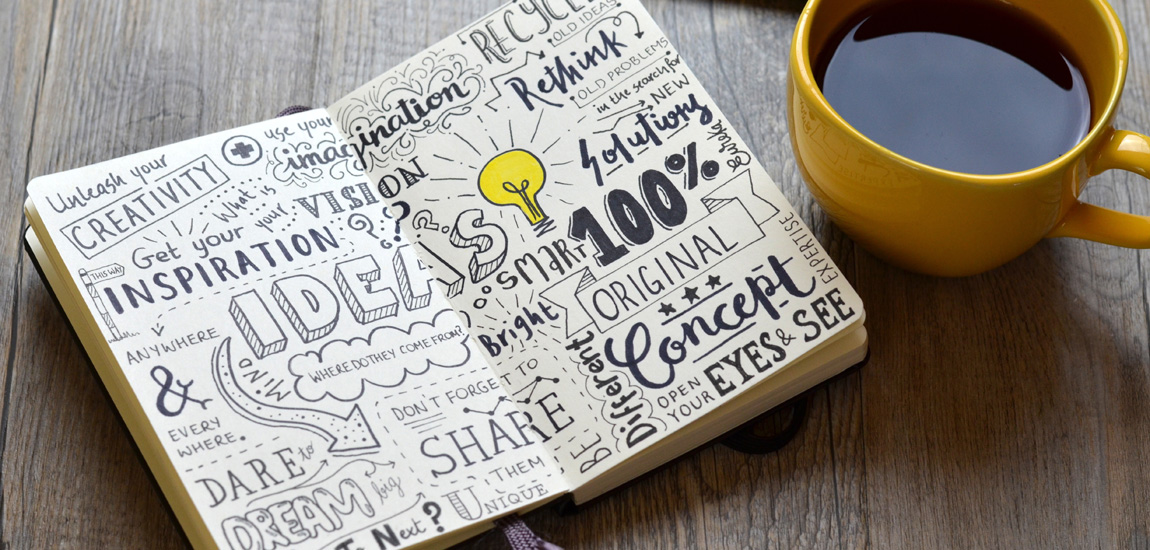 Unleash your
CREATIVITY
use your
imagination
What is
your
VISION
?
Get your
INSPIRATION
THIS WAY
ANYWHERE
&
EVERY
WHERE.
IDEAS
MIND
WHERE DO THEY COME FROM?
DON'T FORGET TO
SHARE
THEM
DARE to
DREAM
big
Next?
UNIQUE
RECYCLE
OLD IDEAS
Rethink
OLD PROBLEMS
in the search for
NEW
Solutions
100%
smart
ORIGINAL
Concept
EXPERTISE
Bright
BE
Different
OPEN
YOUR
EYES & SEE